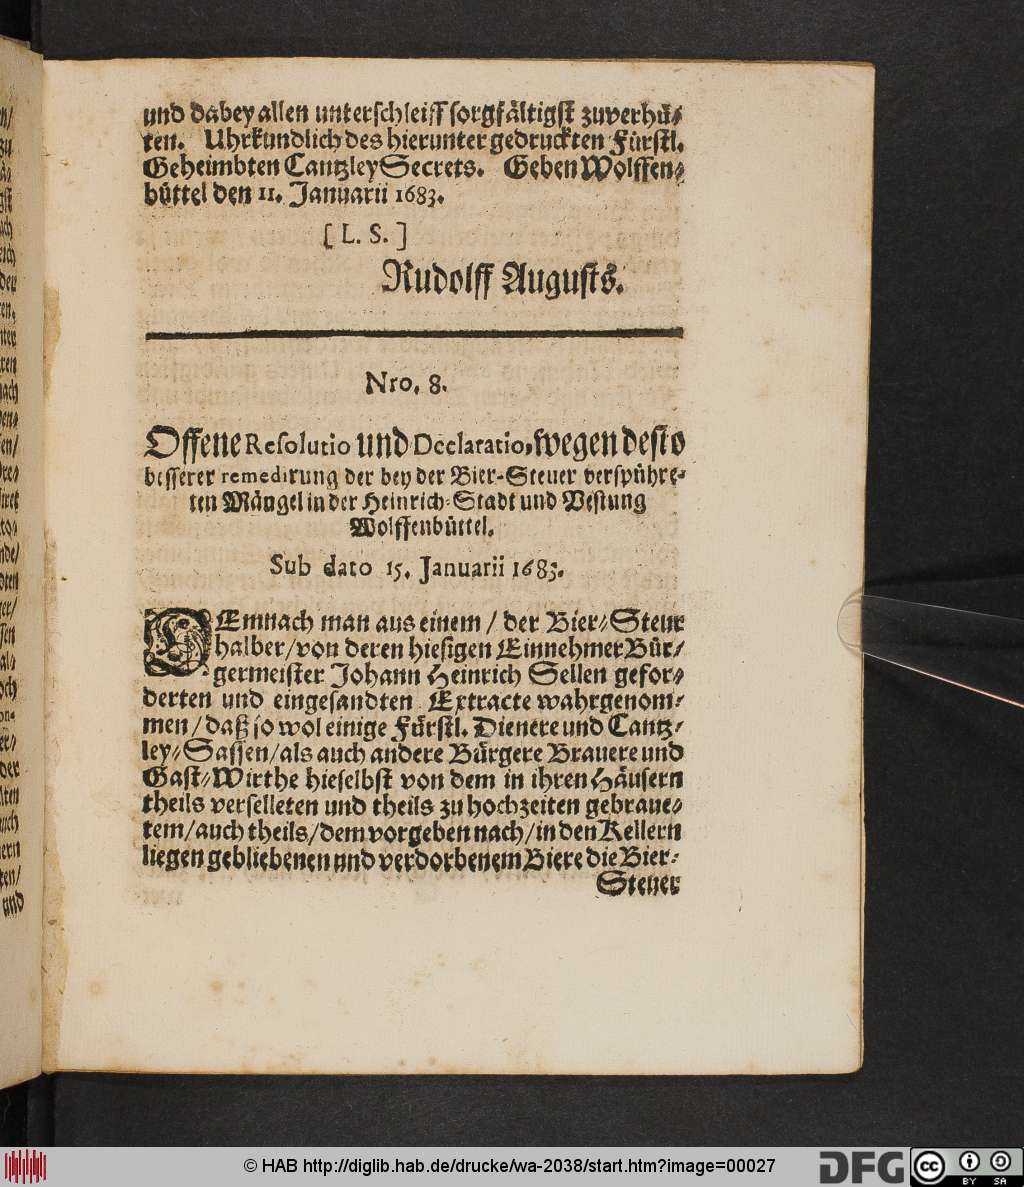 und dabey allen unterschleiff sorgfältigst zuverhü-
ten. Uhrkundlich des hierunter gedruckten Fürstl.
Geheimbten Cantzley Secrets. Geben Wolffen-
büttel den 11. Januarii 1683.
[ L. S. ]
Rudolff Augusts.
Nro. 8.
Offene Resolutio und Declaratio, wegen desto
besserer remedirung der bey der Bier-Steuer verspühre-
ten Mängel in der Heinrich-Stadt und Vestung
Wolffenbüttel.
Sub dato 15. Januarii 1683.
DEmnach man aus einem / der Bier-Steur
halber / von deren hiesigen Einnehmer Bür-
germeister Johann Heinrich Sellen gefor-
derten und eingesandten Extracte wahrgenom-
men / daß so wol einige Fürstl. Dienere und Cantz-
ley-Sassen / als auch andere Bürgere Brauere und
Gast-Wirthe hieselbst von dem in ihren Häusern
theils verselleten und theils zu hochzeiten gebraue-
tem / auch theils / dem vorgeben nach / in den Kellern
liegen gebliebenen und verdorbenem Biere die Bier-
Steuer
© HAB http://diglib.hab.de/drucke/wa-2038/start.htm?image=00027
DFG
cc
BY SA